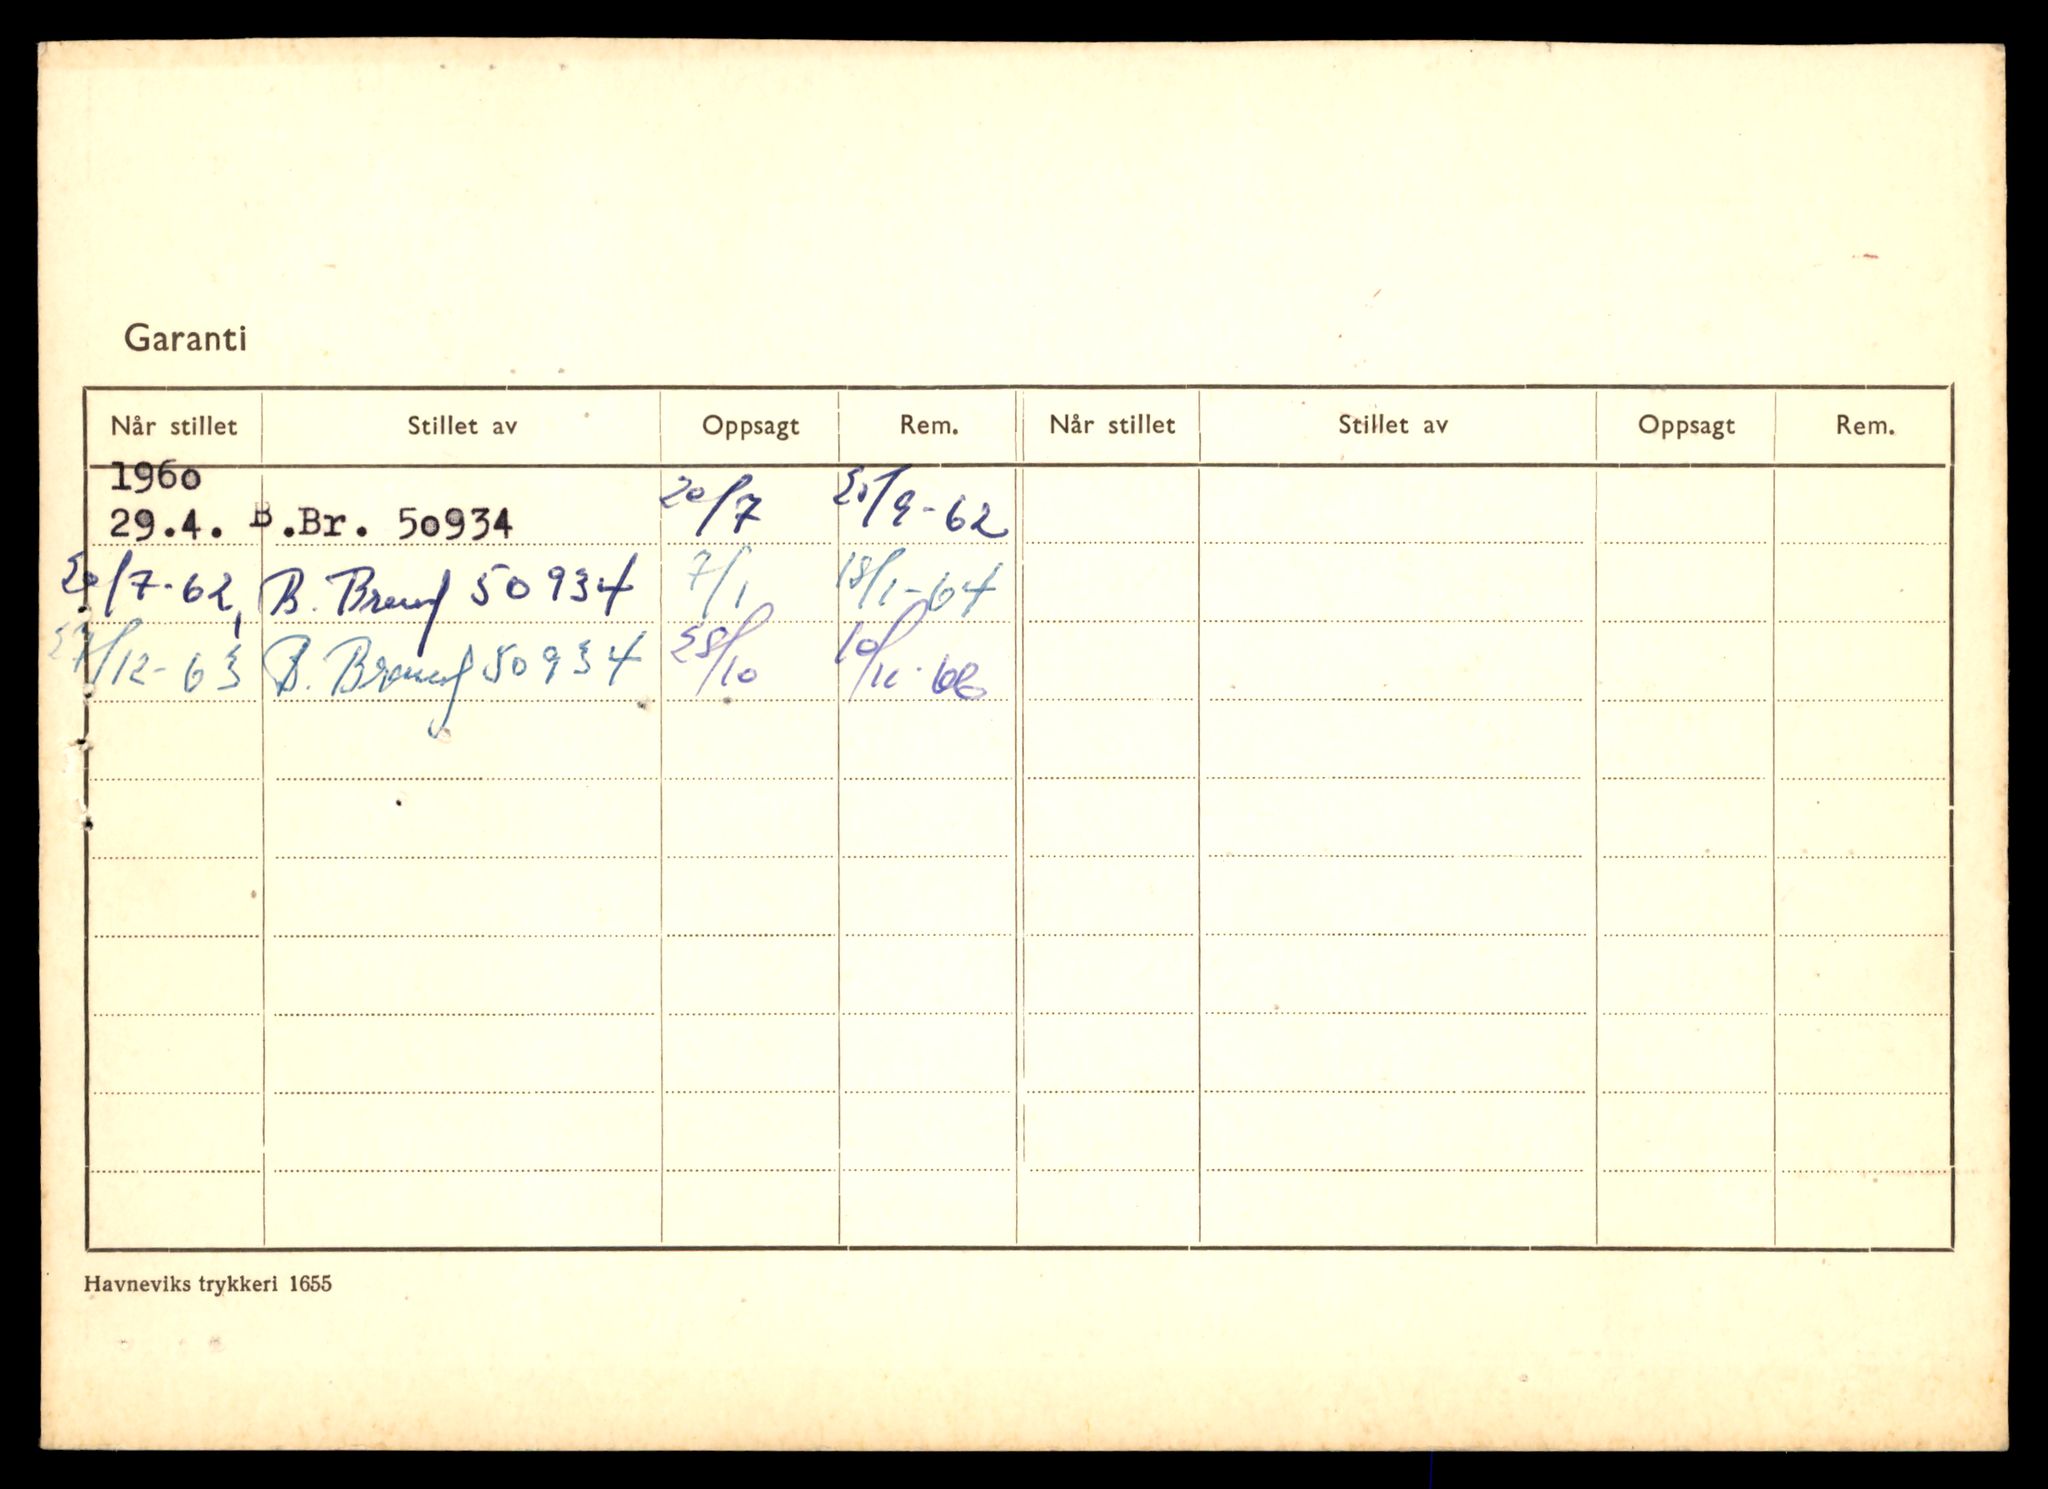 Garanti
Når stillet Stillet av Oppsagt Rem. Når stillet Stillet av Oppsagt Rem.
1960
29.4. B.Br. 50934 20/7 /9-62
20/7-62 B. Brauf 50934 7/1 18/1-64
27/12-63 B. Brauf 50934 28/10 10/11-66
Havneviks trykkeri 1655